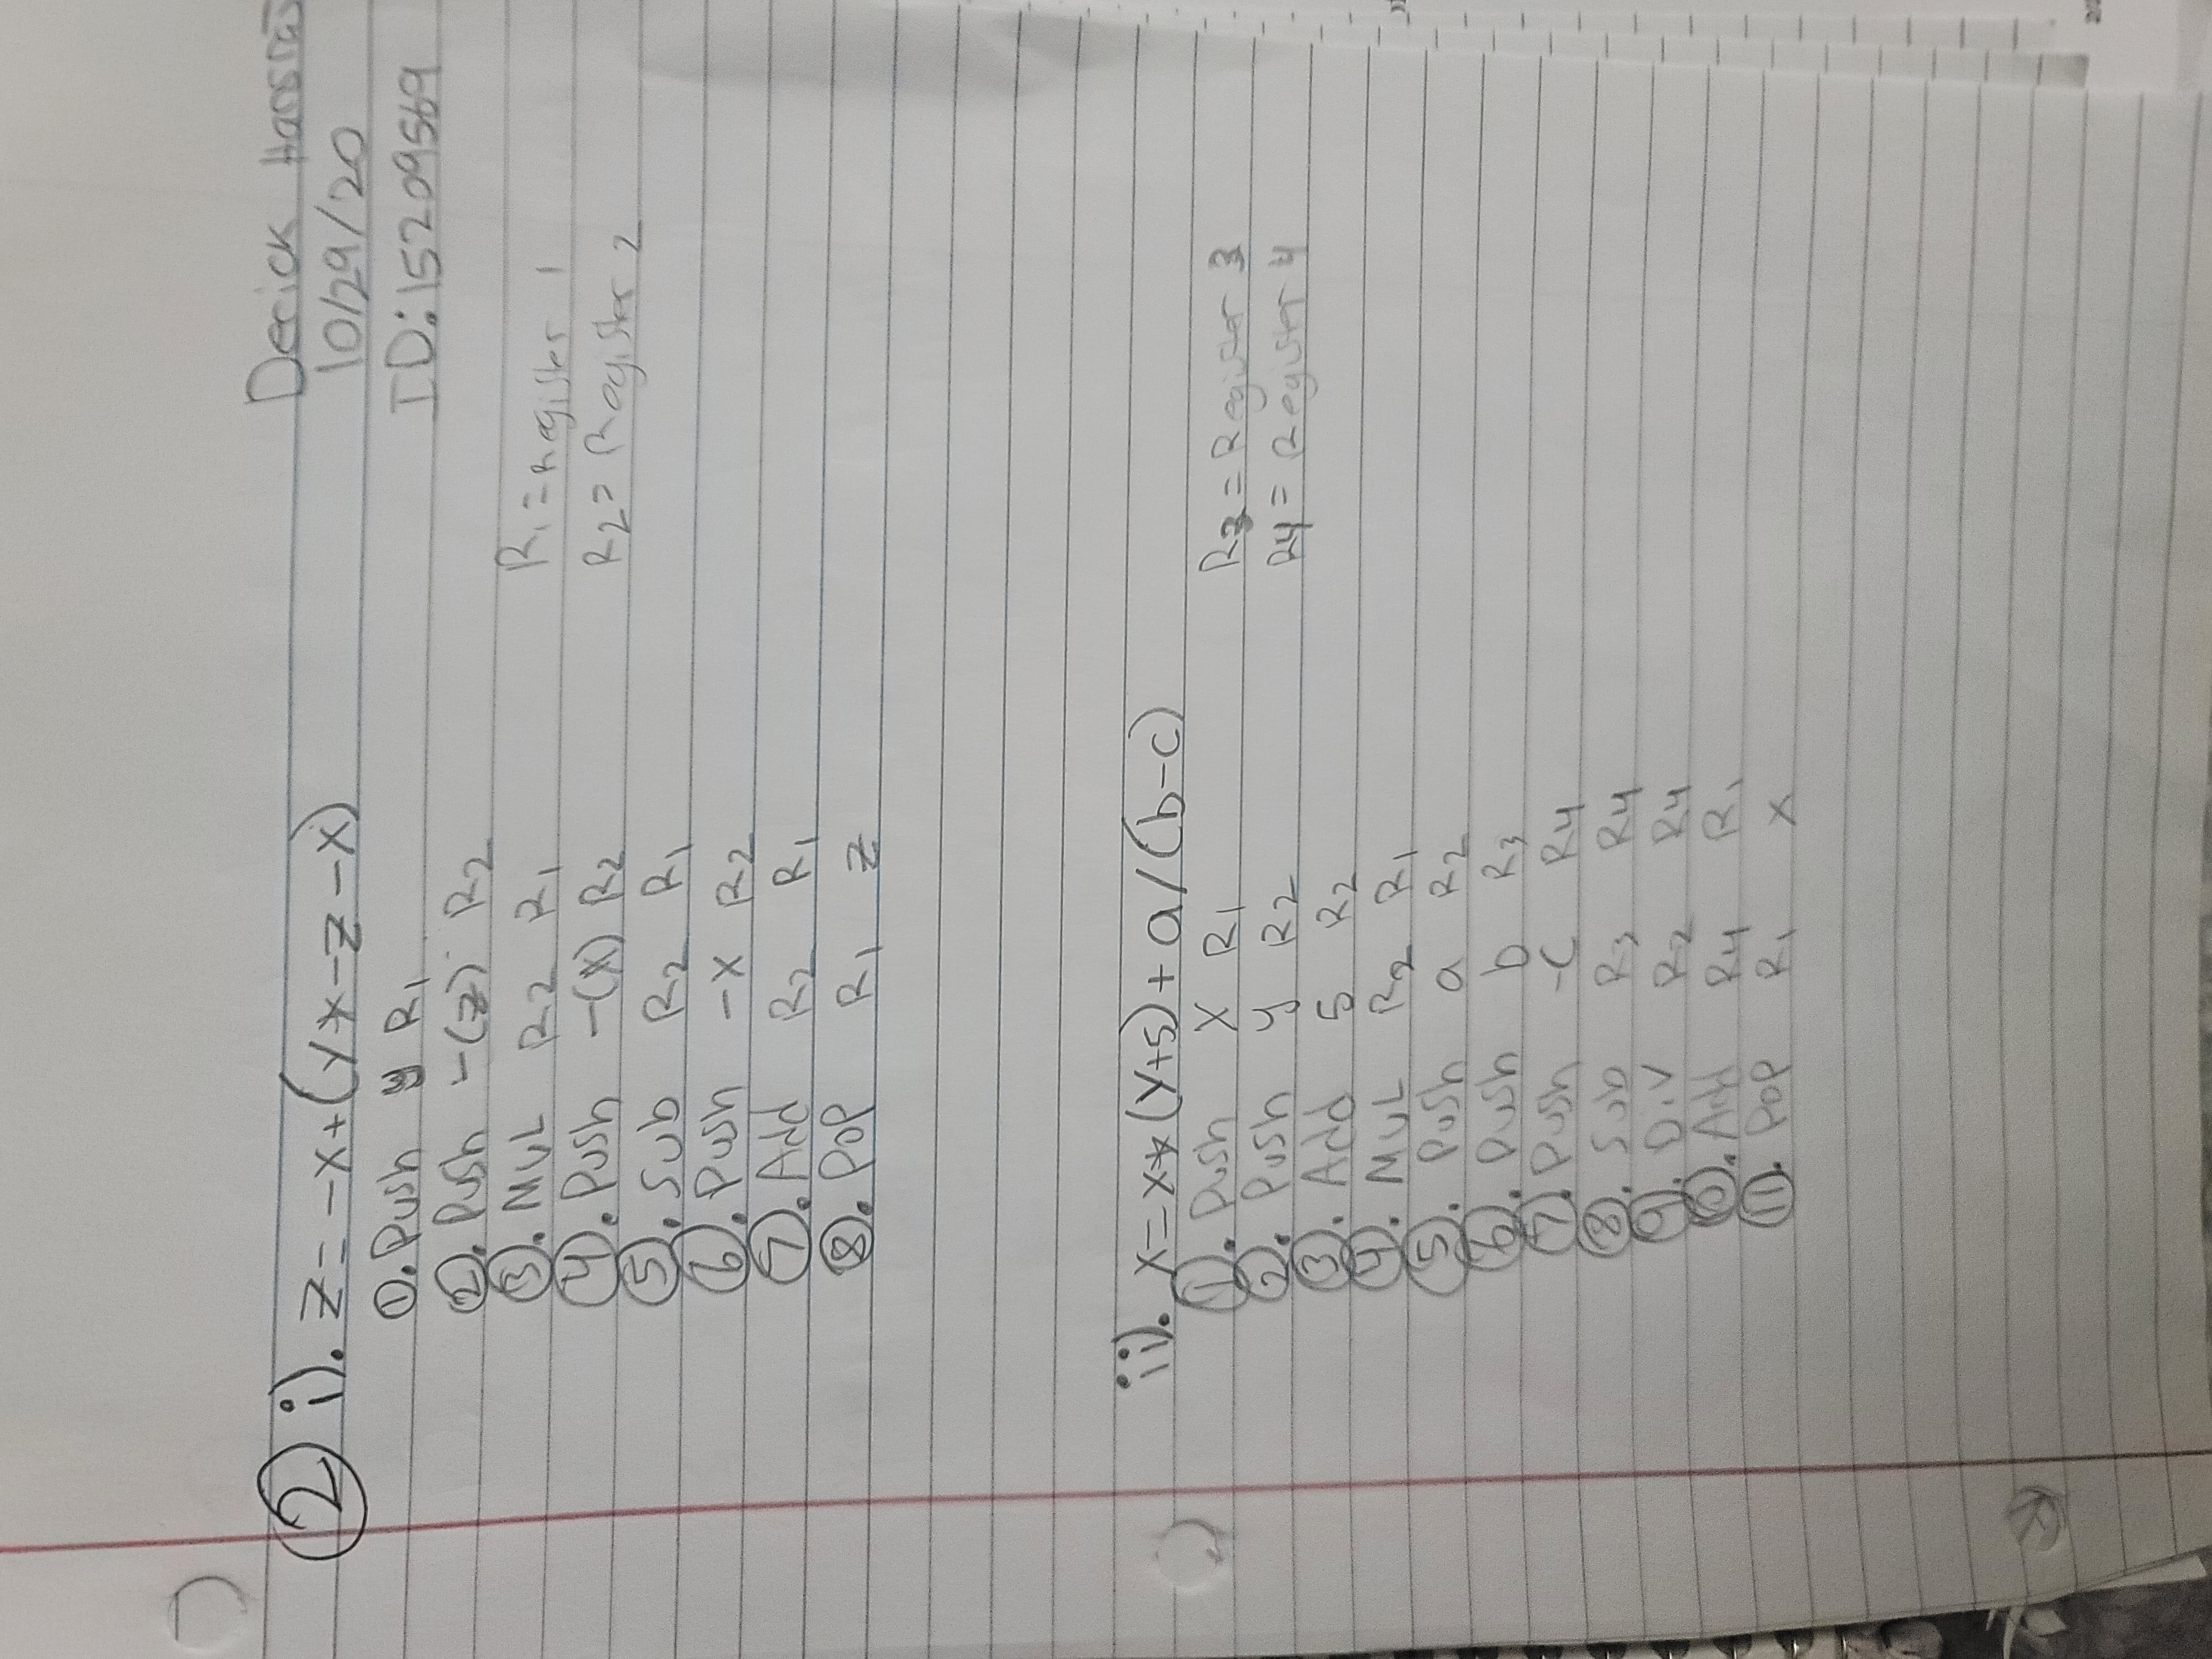 Derick Hansraj
10/29/20
ID: 15209569
② i). Z = -X + (Y * -Z - X)
①. Push y R1
②. Push -(z) R2
③. MUL R2 R1
④. Push -(X) R2
⑤. Sub R2 R1
⑥. Push -X R2
⑦. Add R2 R1
⑧. POP R1 Z
R1 = Register 1
R2 = Register 2
ii). X = X * (Y+5) + a / (b-c)
①. Push X R1
②. Push y R2
③. Add 5 R2
④. MUL R2 R1
⑤. Push a R2
⑥. Push b R3
⑦. Push -C R4
⑧. Sub R3 R4
⑨. Div R2 R4
⑩. Add R4 R1
⑪. POP R1 X
R3 = Register 3
R4 = Register 4